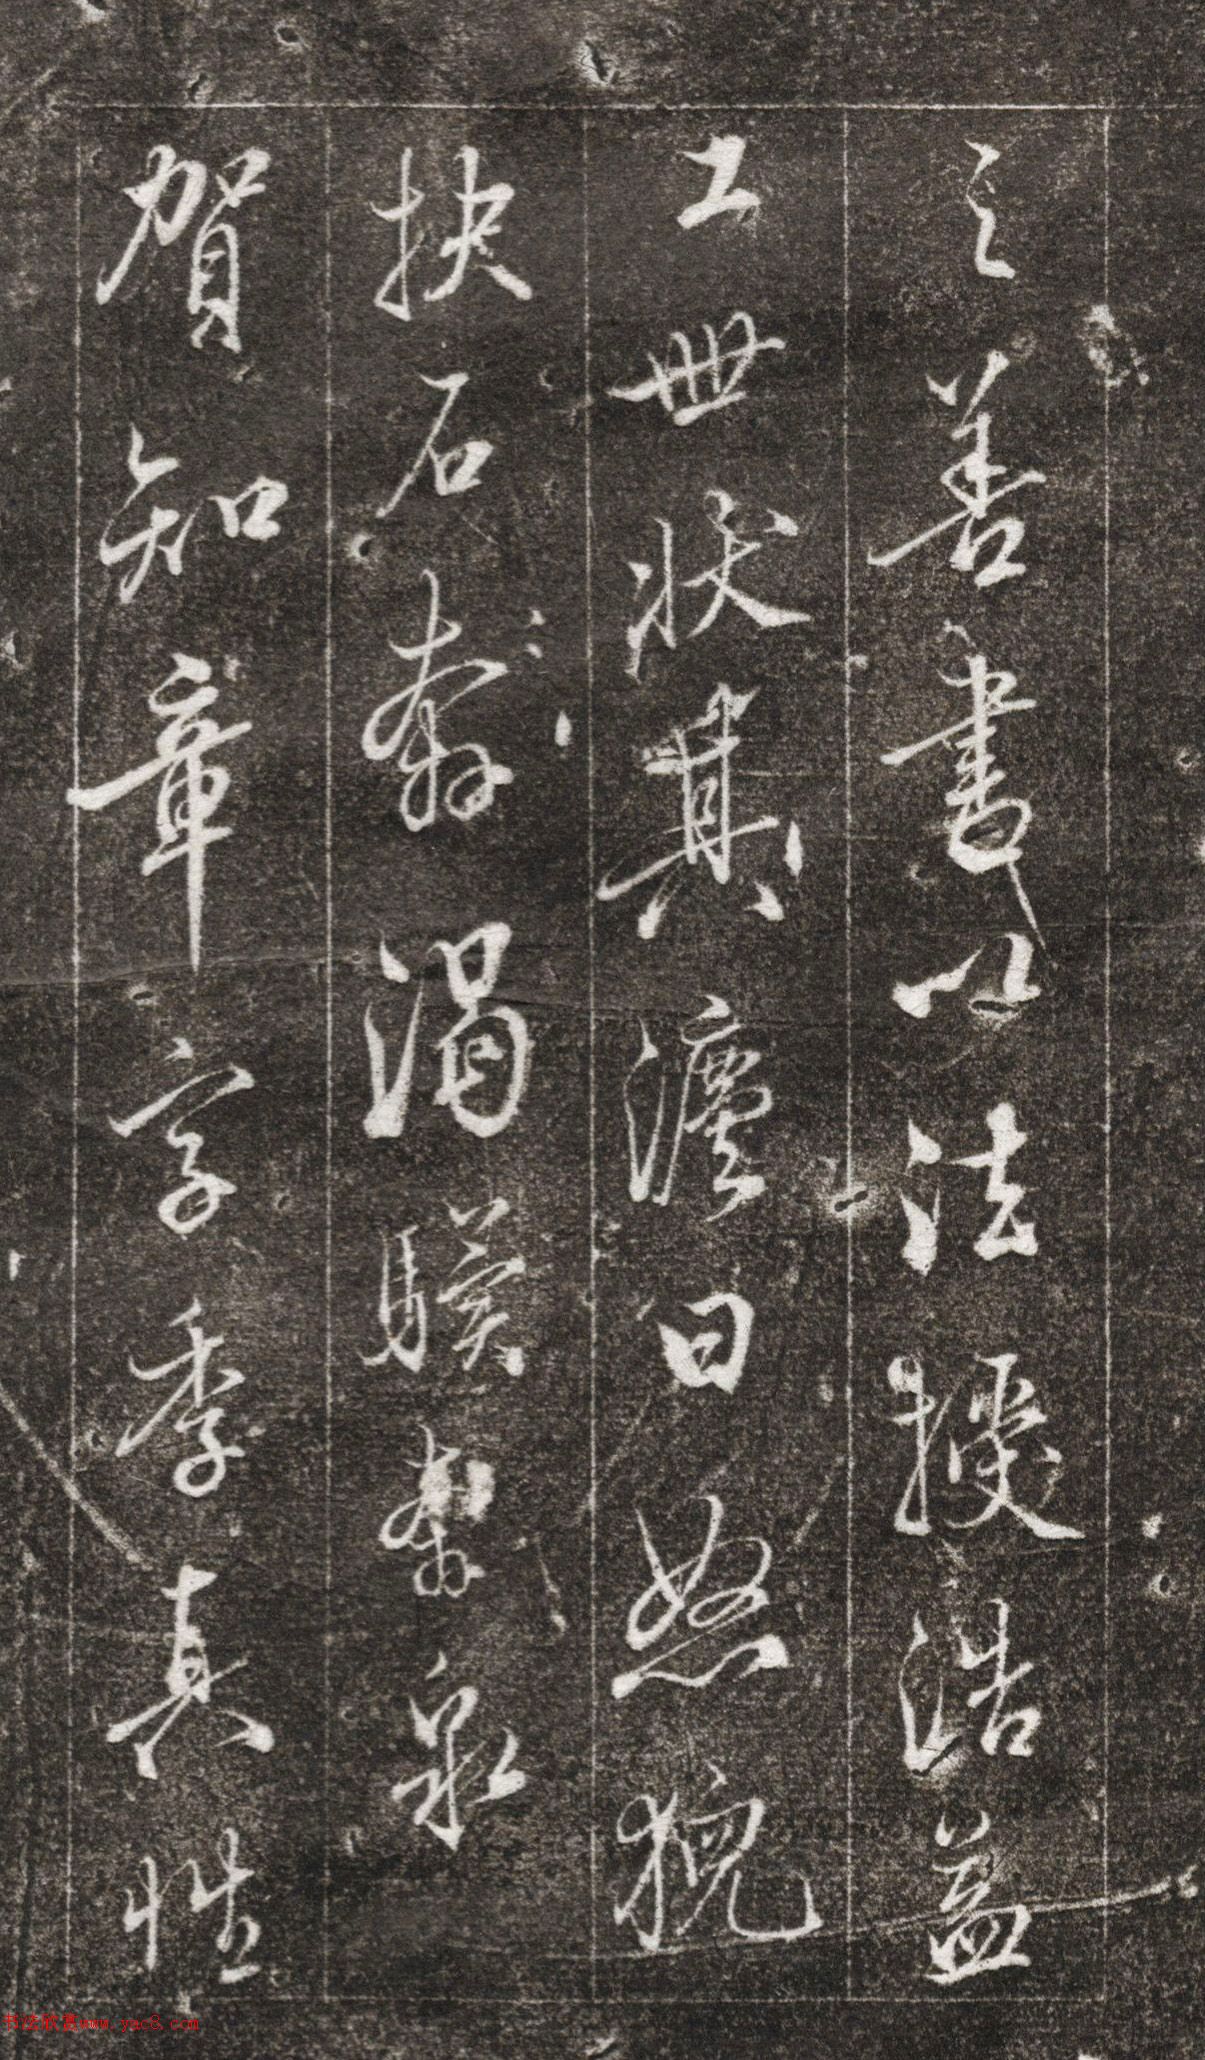 之善書以法授浩益
工世狀其法曰怒猊
抉石渴驥奔泉
賀知章字季真性
书法欣赏www.yac8.com